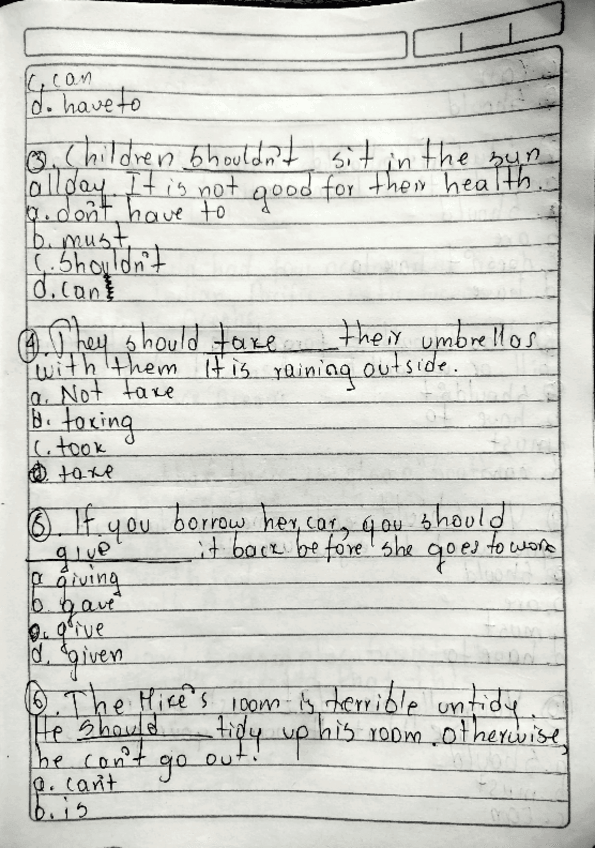 c. can
d. have to
3. Children shouldn't sit in the sun
all day. It is not good for their health.
a. don't have to
b. must
c. Shouldn't
d. can
4. They should take their umbrellas
with them It is raining outside.
a. Not take
b. taking
c. took
d. take
5. If you borrow her car, you should
give it back before she goes to work
a. giving
b. gave
c. give
d. given
6. The Mike's room is terrible untidy.
He should tidy up his room. Otherwise,
he can't go out!
a. can't
b. is